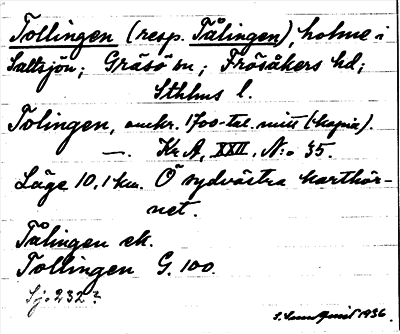 Tollingen (resp. Tålingen), holme i
Saltsjön; Gräsö sn; Frösåkers hd;
Sthlms l.
Tolingen, omkr. 1700-tal. mitt (kopia).
—. Kr A, XXII, N:o 35.
Läge 10,1 km. Ö sydvästra karthör-
net.
Tålingen ek.
Tollingen G. 100.
Sj. 232?
1936.